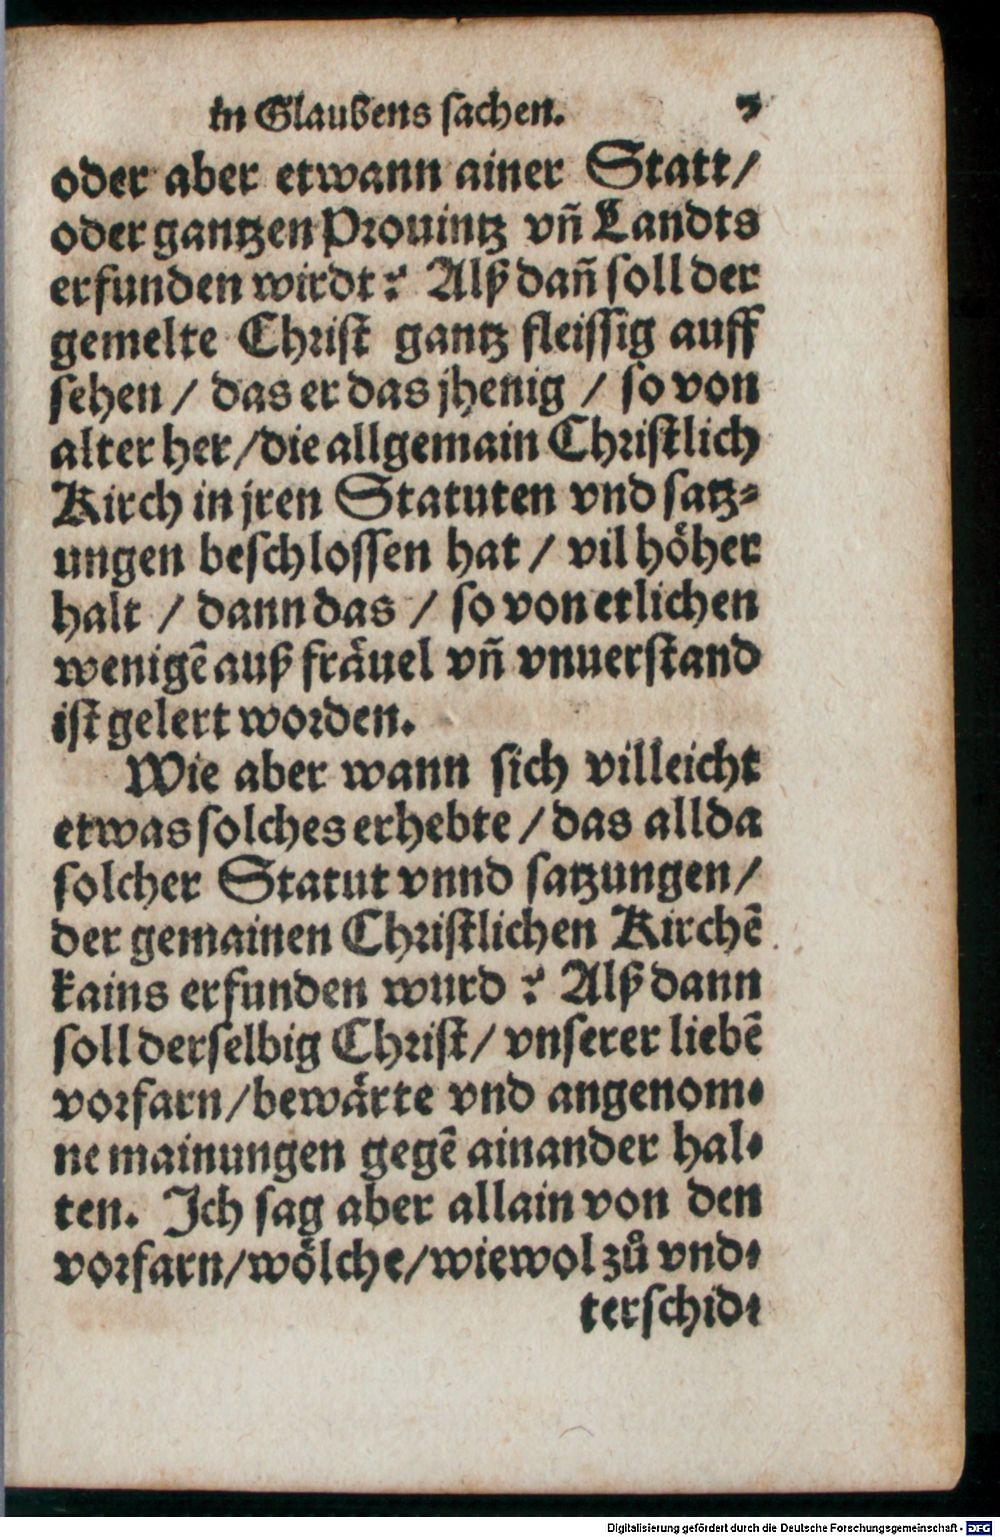 in Glaubens sachen. 5
oder aber etwann ainer Statt/
oder gantzen Prouintz vñ Landts
erfunden wirdt? Alß dañ soll der
gemelte Christ gantz fleissig auff
sehen / das er das jhenig / so von
alter her/die allgemain Christlich
Kirch in jren Statuten vnd satz-
ungen beschlossen hat / vil höher
halt / dann das / so von etlichen
wenigẽ auß fräuel vñ vnuerstand
ist gelert worden.
Wie aber wann sich villeicht
etwas solches erhebte / das allda
solcher Statut vnnd satzungen/
der gemainen Christlichen Kirchẽ
kains erfunden wurd ? Alß dann
soll derselbig Christ/ vnserer liebẽ
vorfarn/bewärte vnd angenom-
ne mainungen gegẽ ainander hal-
ten. Ich sag aber allain von den
vorfarn/wölche/wiewol zů vnd-
terschid-
Digitalisierung gefördert durch die Deutsche Forschungsgemeinschaft - DFG